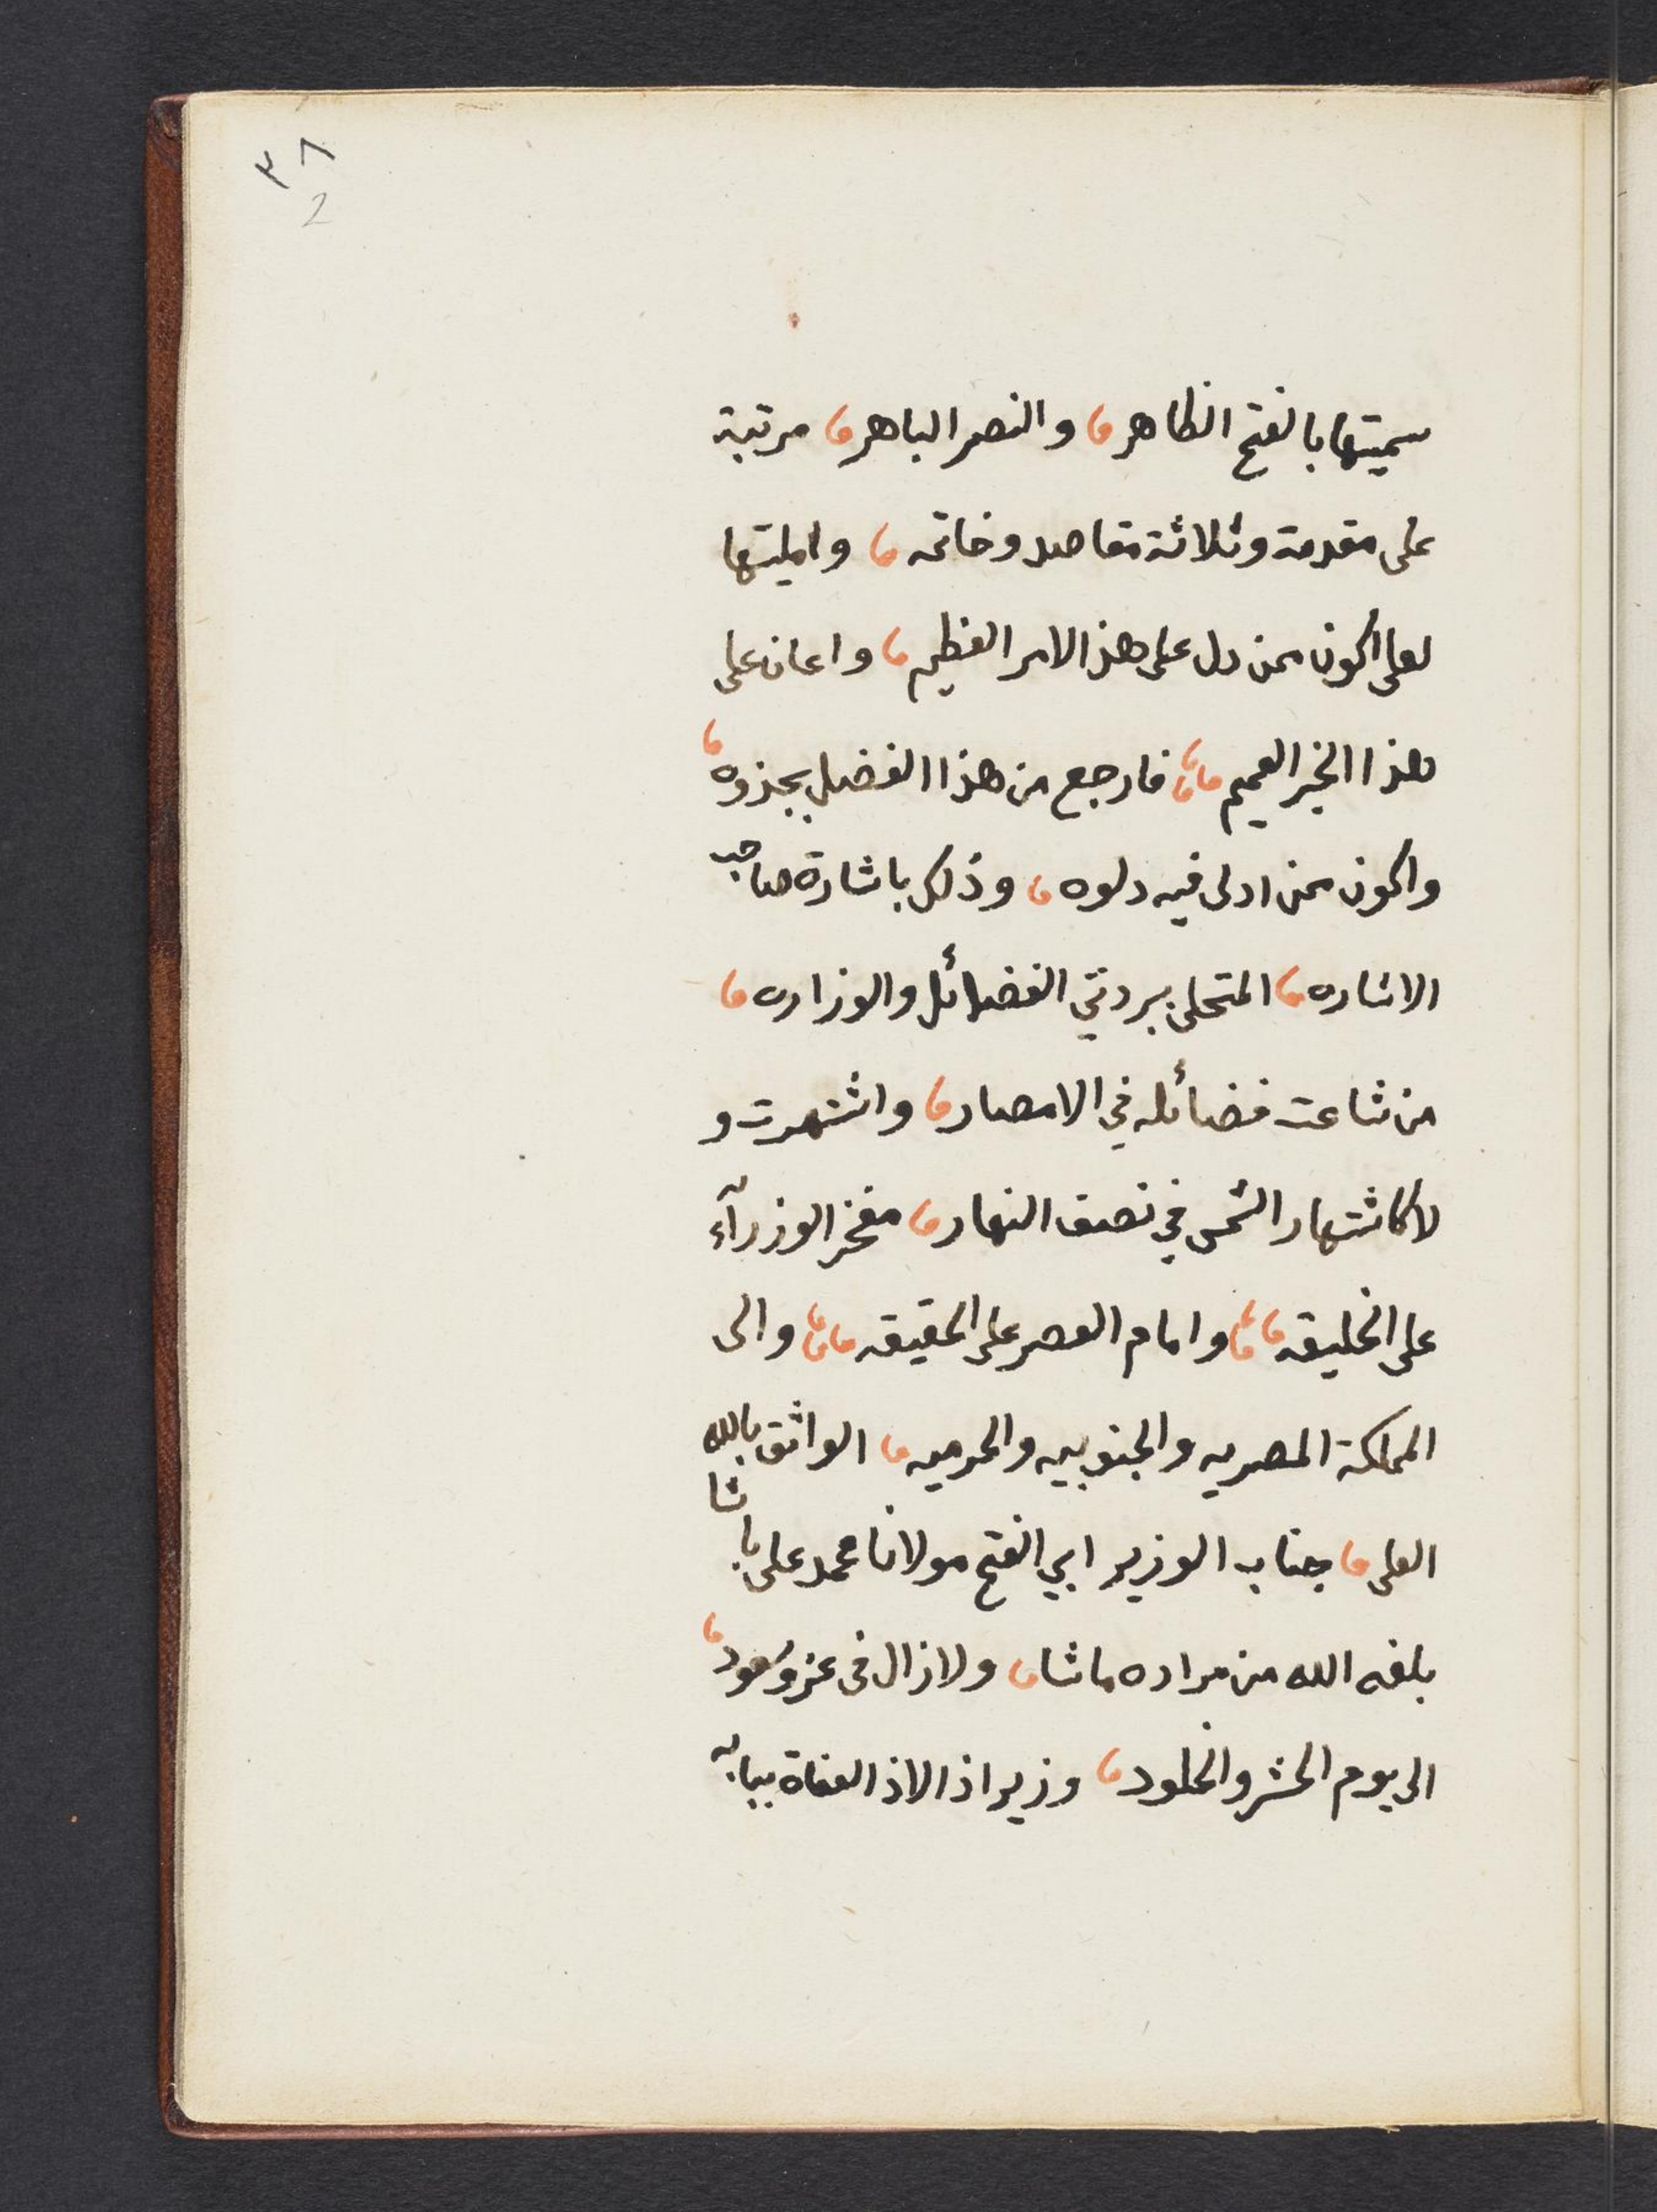 ٣٨
2
سميتها بالفتح الظاهر، والنصر الباهر، مرتبة
على مقدمة وثلاثة مقاصد وخاتمه، وامليتها
لعلى اكون ممن دل على هذا الامر العظيم، واعان على
هذا الخير العميم، فارجع من هذا الفضل بجذوه،
واكون ممن ادلى فيه دلوه، وذلك باشارة صاحب
الاشاره، المتحلى ببردتي الفضائل والوزاره،
من شاعت فضائله في الامصار، واشتهرت و
لا كاشتهار الشمس في نصف النهار، مفخر الوزرآء
على الخليقه، وامام العصر على الحقيقه، والى
المملكة المصريه والجنوبيه والحرميه، الواثق بالله
العلى، جناب الوزير ابي الفتح مولانا محمد على باشا
بلغه الله من مراده ماشا، ولا زال فى عز وسعود،
الى يوم الحشر والخلود، وزير اذا لاذ العفاة ببابه